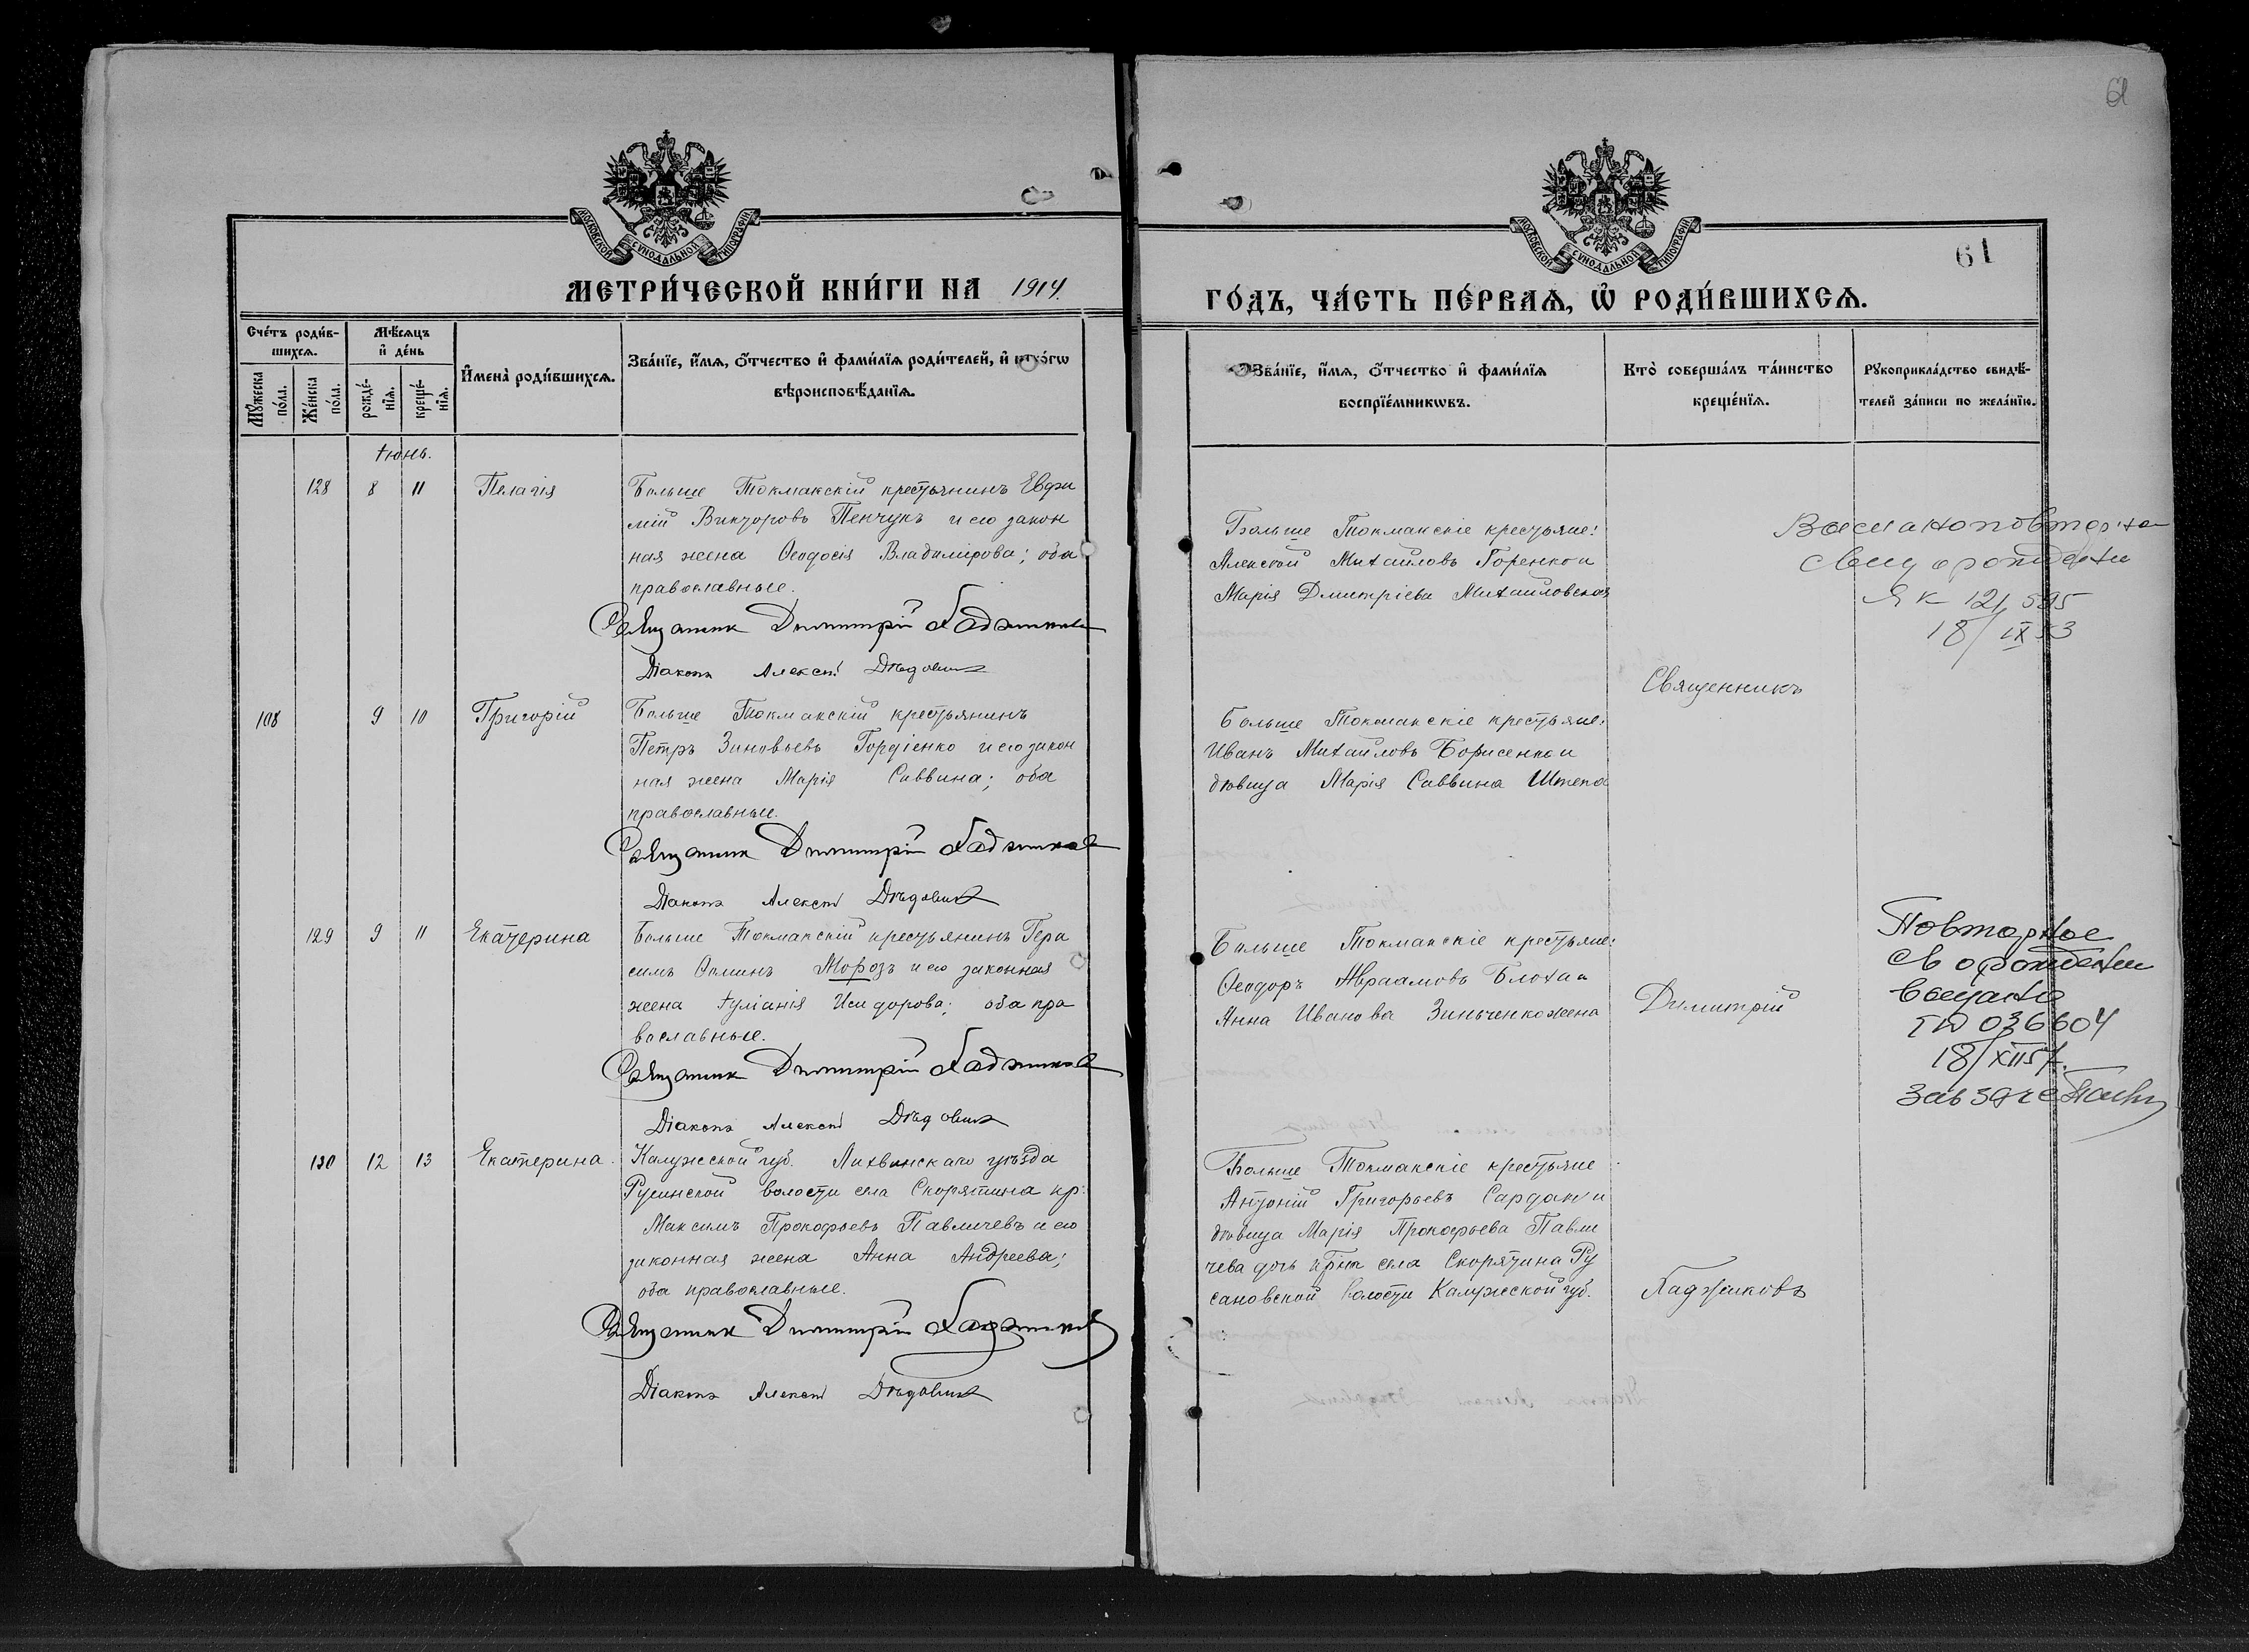 61
МОСКОВСКОЙ СУНОДАЛЬНОЙ ТИПОГРАФІИ
МОСКОВСКОЙ СУНОДАЛЬНОЙ ТИПОГРАФІИ
61
МЕТРИ́ЧЕСКОЙ КНИ́ГИ НА 1914.
ГО́ДЪ, ЧА́СТЬ ПЕ́РВАѦ, Ѽ РОДИ́ВШИХСѦ.
Сче́тъ роди́в-
шихсѧ.
Мѣ́сѧцъ
и҆ де́нь
Мꙋ́жеска по́ла.
Же́нска по́ла.
рожде́-
нїѧ.
креще́-
нїѧ.
И҆мена̀ роди́вшихсѧ.
Зва́нїе, и҆́мѧ, ѻ҆́тчество и҆ фами́лїѧ роди́телей, и҆ кото́рагѡ
вѣроисповѣ́данїѧ.
Зва́нїе, и҆́мѧ, ѻ҆́тчество и҆ фами́лїѧ
воспрїе́мникѡвъ.
Кто̀ соверша́лъ та́инство
креще́нїѧ.
Рꙋкоприкла́дство свидѣ́-
телей за́писи по жела́нїю.
Іюнь.
128 8 11 Пелагія
Больше Токмакскій крестьянинъ Евфи
мій Викторовъ Пенчукъ и его закон
ная жена Ѳеодосія Владимірова; оба
православные.
Священник Димитрій Хаджиковъ
Діаконъ Алексѣй Дѣдовичъ
Больше Токмакскіе крестьяне:
Алексѣй Михайловъ Горенко и
Марія Дмитріева Михайловская
свид о рождени
ЯК 121595
18/IX 53
108 9 10 Григорій
Больше Токмакскій крестьянинъ
Петръ Зиновьевъ Гордіенко и его закон
ная жена Марія Саввина; оба
православные.
Священник Димитрій Хаджиковъ
Діаконъ Алексѣй Дѣдовичъ
Больше Токмакскіе крестьяне:
Иванъ Михайловъ Борисенко и
дѣвица Марія Саввина Штепа
Священникъ
129 9 11 Екатерина
Больше Токмакскій крестьянинъ Гера
симъ Ѳоминъ Морозъ и его законная
жена Іуліанія Исидорова; оба пра
вославные.
Священник Димитрій Хаджиковъ
Діаконъ Алексѣй Дѣдовичъ
Больше Токмакскіе крестьяне:
Ѳеодоръ Авраамовъ Блоха и
Анна Иванова Зинченко жена
Димитрій
Повторное
св о рождении
выдано
036604
18/XII 57.
130 12 13 Екатерина.
Калужской губ. Лихвинскаго уѣзда
Русинской волости села Скорятина кр.
Максимъ Прокофьевъ Павличевъ и его
законная жена Анна Андреева;
оба православные.
Священник Димитрій Хаджиковъ
Діаконъ Алексѣй Дѣдовичъ
Больше Токмакскіе крестьяне
Антоній Григорьевъ Сардак и
дѣвица Марія Прокофьева Павли
чева дочь села Скорятина Ру
сановской волости Калужской губ.
Хаджиковъ